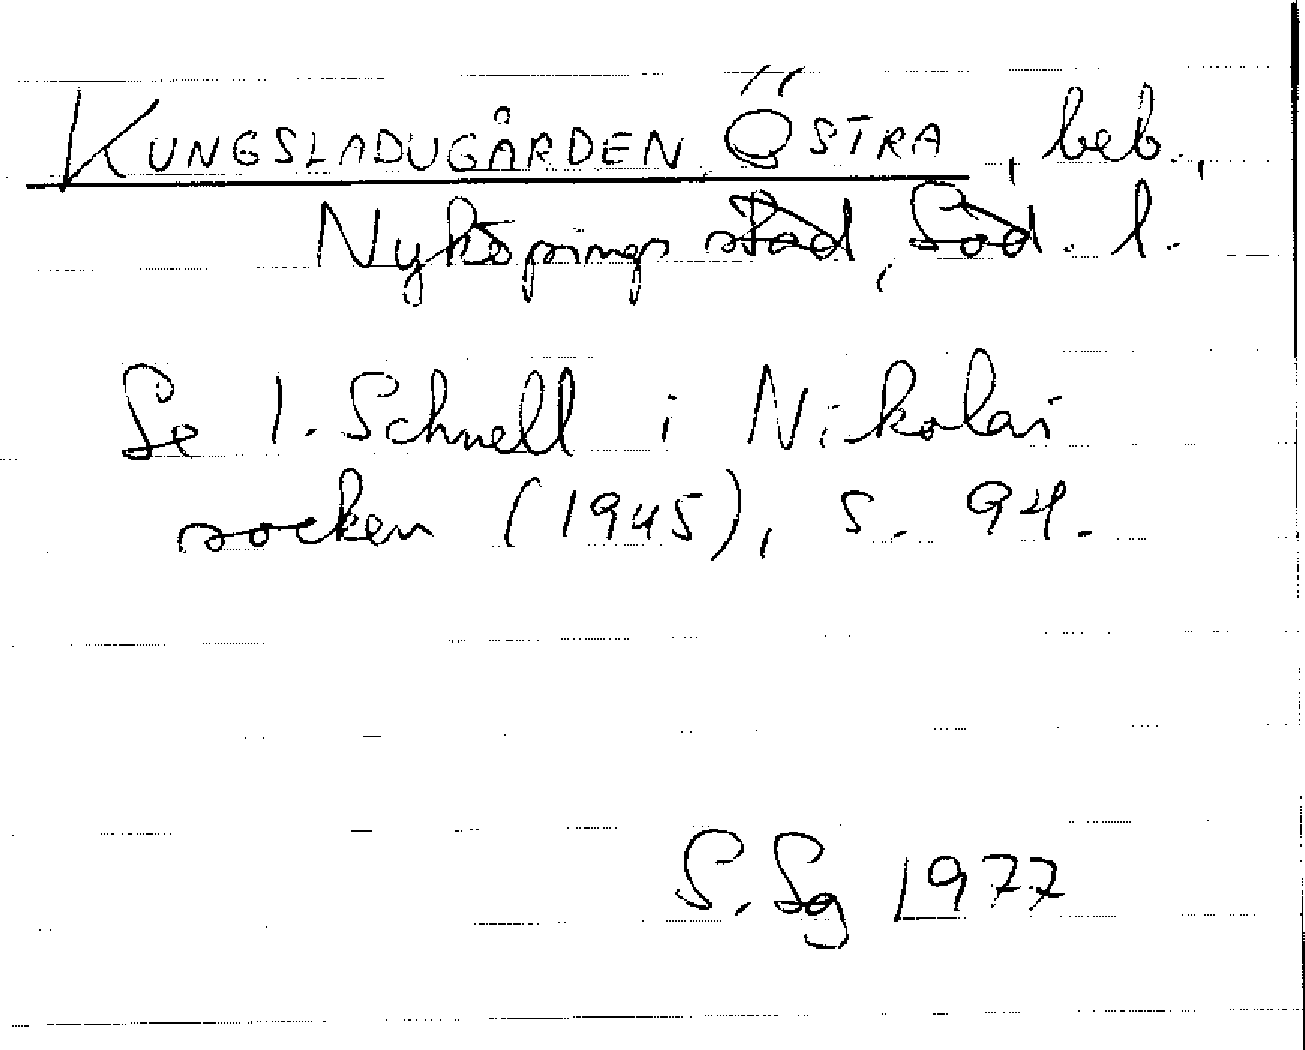 KUNGSLADUGÅRDEN, ÖSTRA, beb.,
Nyköpings stad, Söd. l.
Se I. Schnell i Nikolai
socken (1945), s. 94.
S. Sg 1977